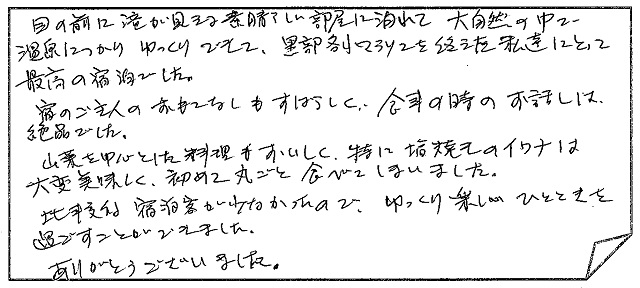 目の前に滝が見える素晴しい部屋に泊れて 大自然の中で
温泉につかり ゆっくりできて、黒部 を終えた私達にとって
最高の宿泊でした。
宿のご主人のおもてなしもすばらしく、食事の時のお話しは、
絶品でした。
山菜を中心とした料理もおいしく、特に塩焼きのイワナは
大変美味しく、初めて丸ごと食べてしまいました。
比較的 宿泊客が少なかったので、ゆっくり楽しいひとときを
過ごすことができました。
ありがとうございました。